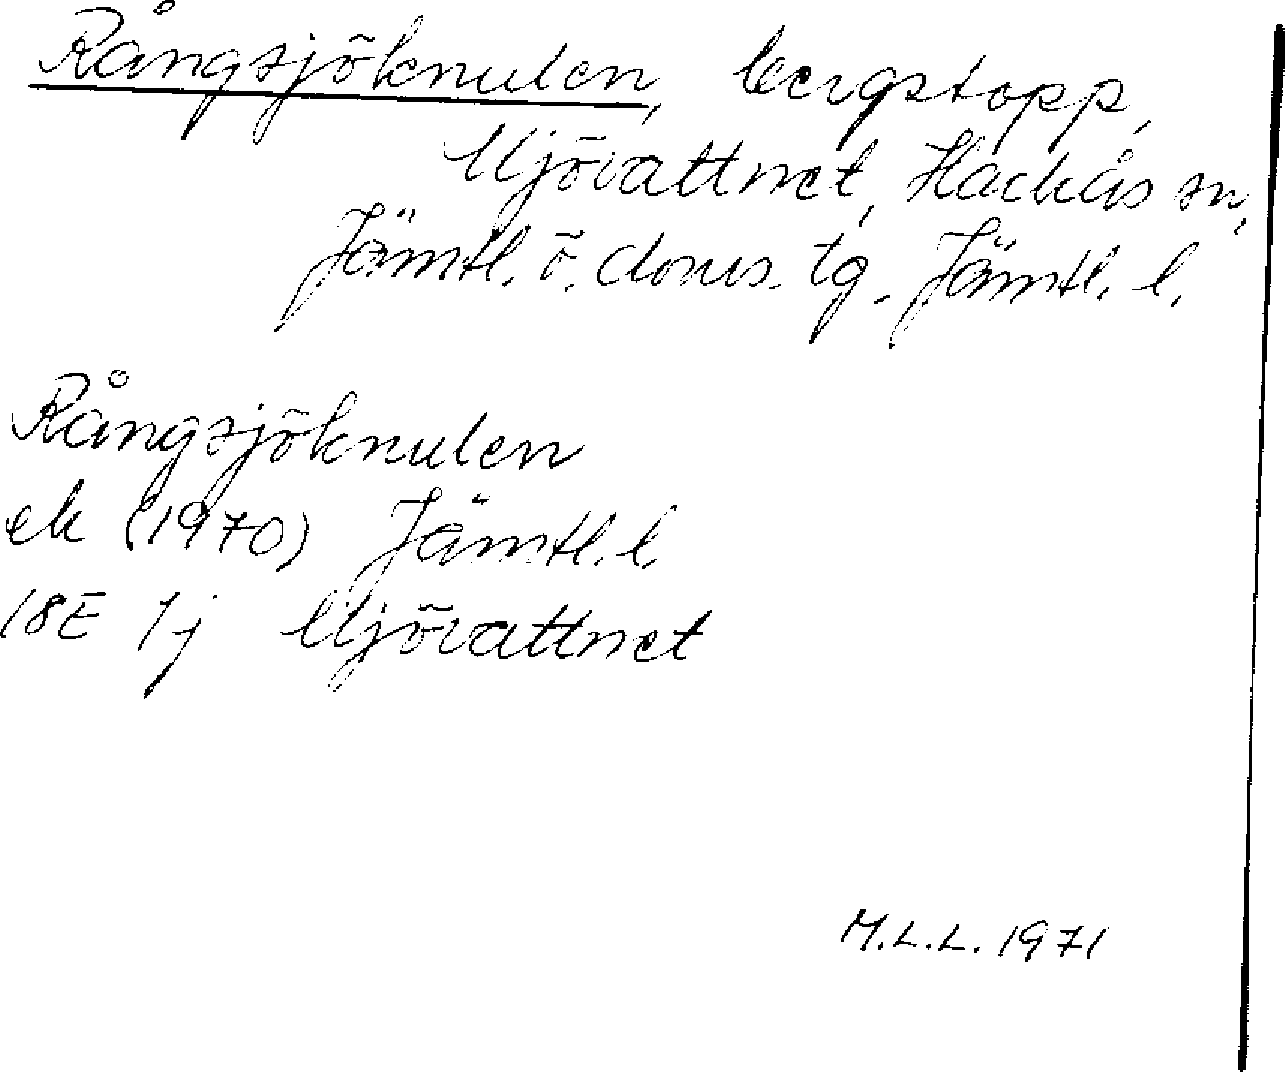 Rångsjöknulen, bergstopp,
Mjövattnet, Hackås sn,
Jämtl. ö. doms. tg. Jämtl. l.
Rångsjöknulen
ek (1970) Jämtl. l.
18E 1j Mjövattnet
M.L.L. 1971